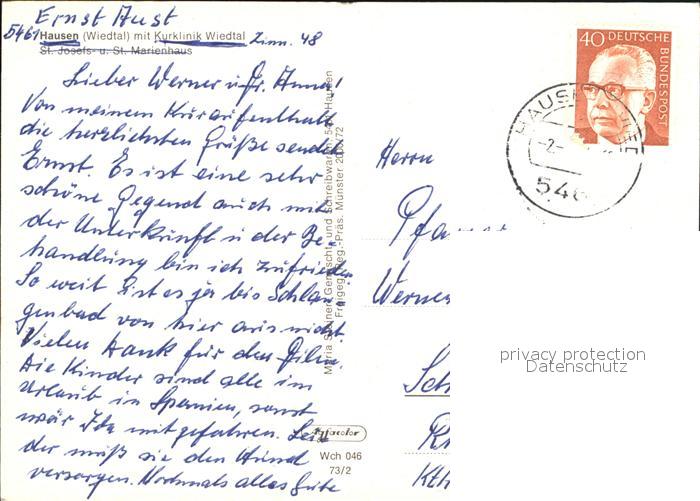 Ernst Aust
5461 Hausen (Wiedtal) mit Kurklinik Wiedtal
St. Josefs- u. St. Marienhaus
Zim. 48
Lieber Werner u. Fr. Anna!
Von meinem Kuraufenthalt
die herzlichsten Grüße sendet
Ernst. Es ist eine sehr
schöne Gegend auch mit
der Unterkunft u der Be-
handlung bin ich zufrieden
So weit ist es ja bis Schlan-
genbad von hier aus nicht.
Vielen Dank für den Film.
Die Kinder sind alle im
Urlaub in Spanien, sonst
wär Ida mitgefahren.
der muß sie den Hund
versorgen. Nochmals alles Gute
Gemischt- und Schreibwaren, 5461 Hausen
Freigegeb. Reg.-Präs. Münster
afacolor
Wch 046
73/2
40 DEUTSCHE BUNDESPOST
HAUSEN
-2-
546
Herrn
Pfa
Werner
Sch
Kth
privacy protection
Datenschutz